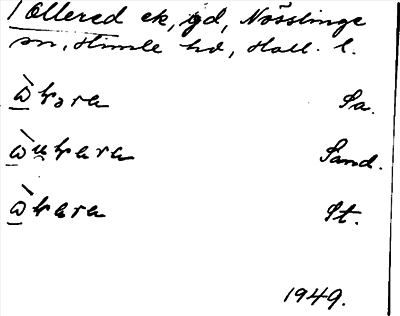 Tøllered ek, gd, Nösslinge
sn, Himle hd, Hall. l.
ὼ̲kəra Sa.
ὼ̲u̯kara Sand.
ὼ̲kara St.
1949.